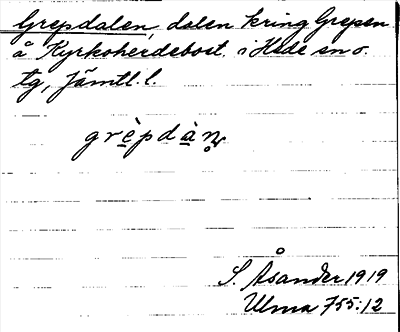 Grepdalen, dalen kring Grepen
å Kyrkoherdebost. i Hede sn o.
tg, Jämtl. l.
grèpdàn̥
S. Åsander 1919
Ulma 755:12